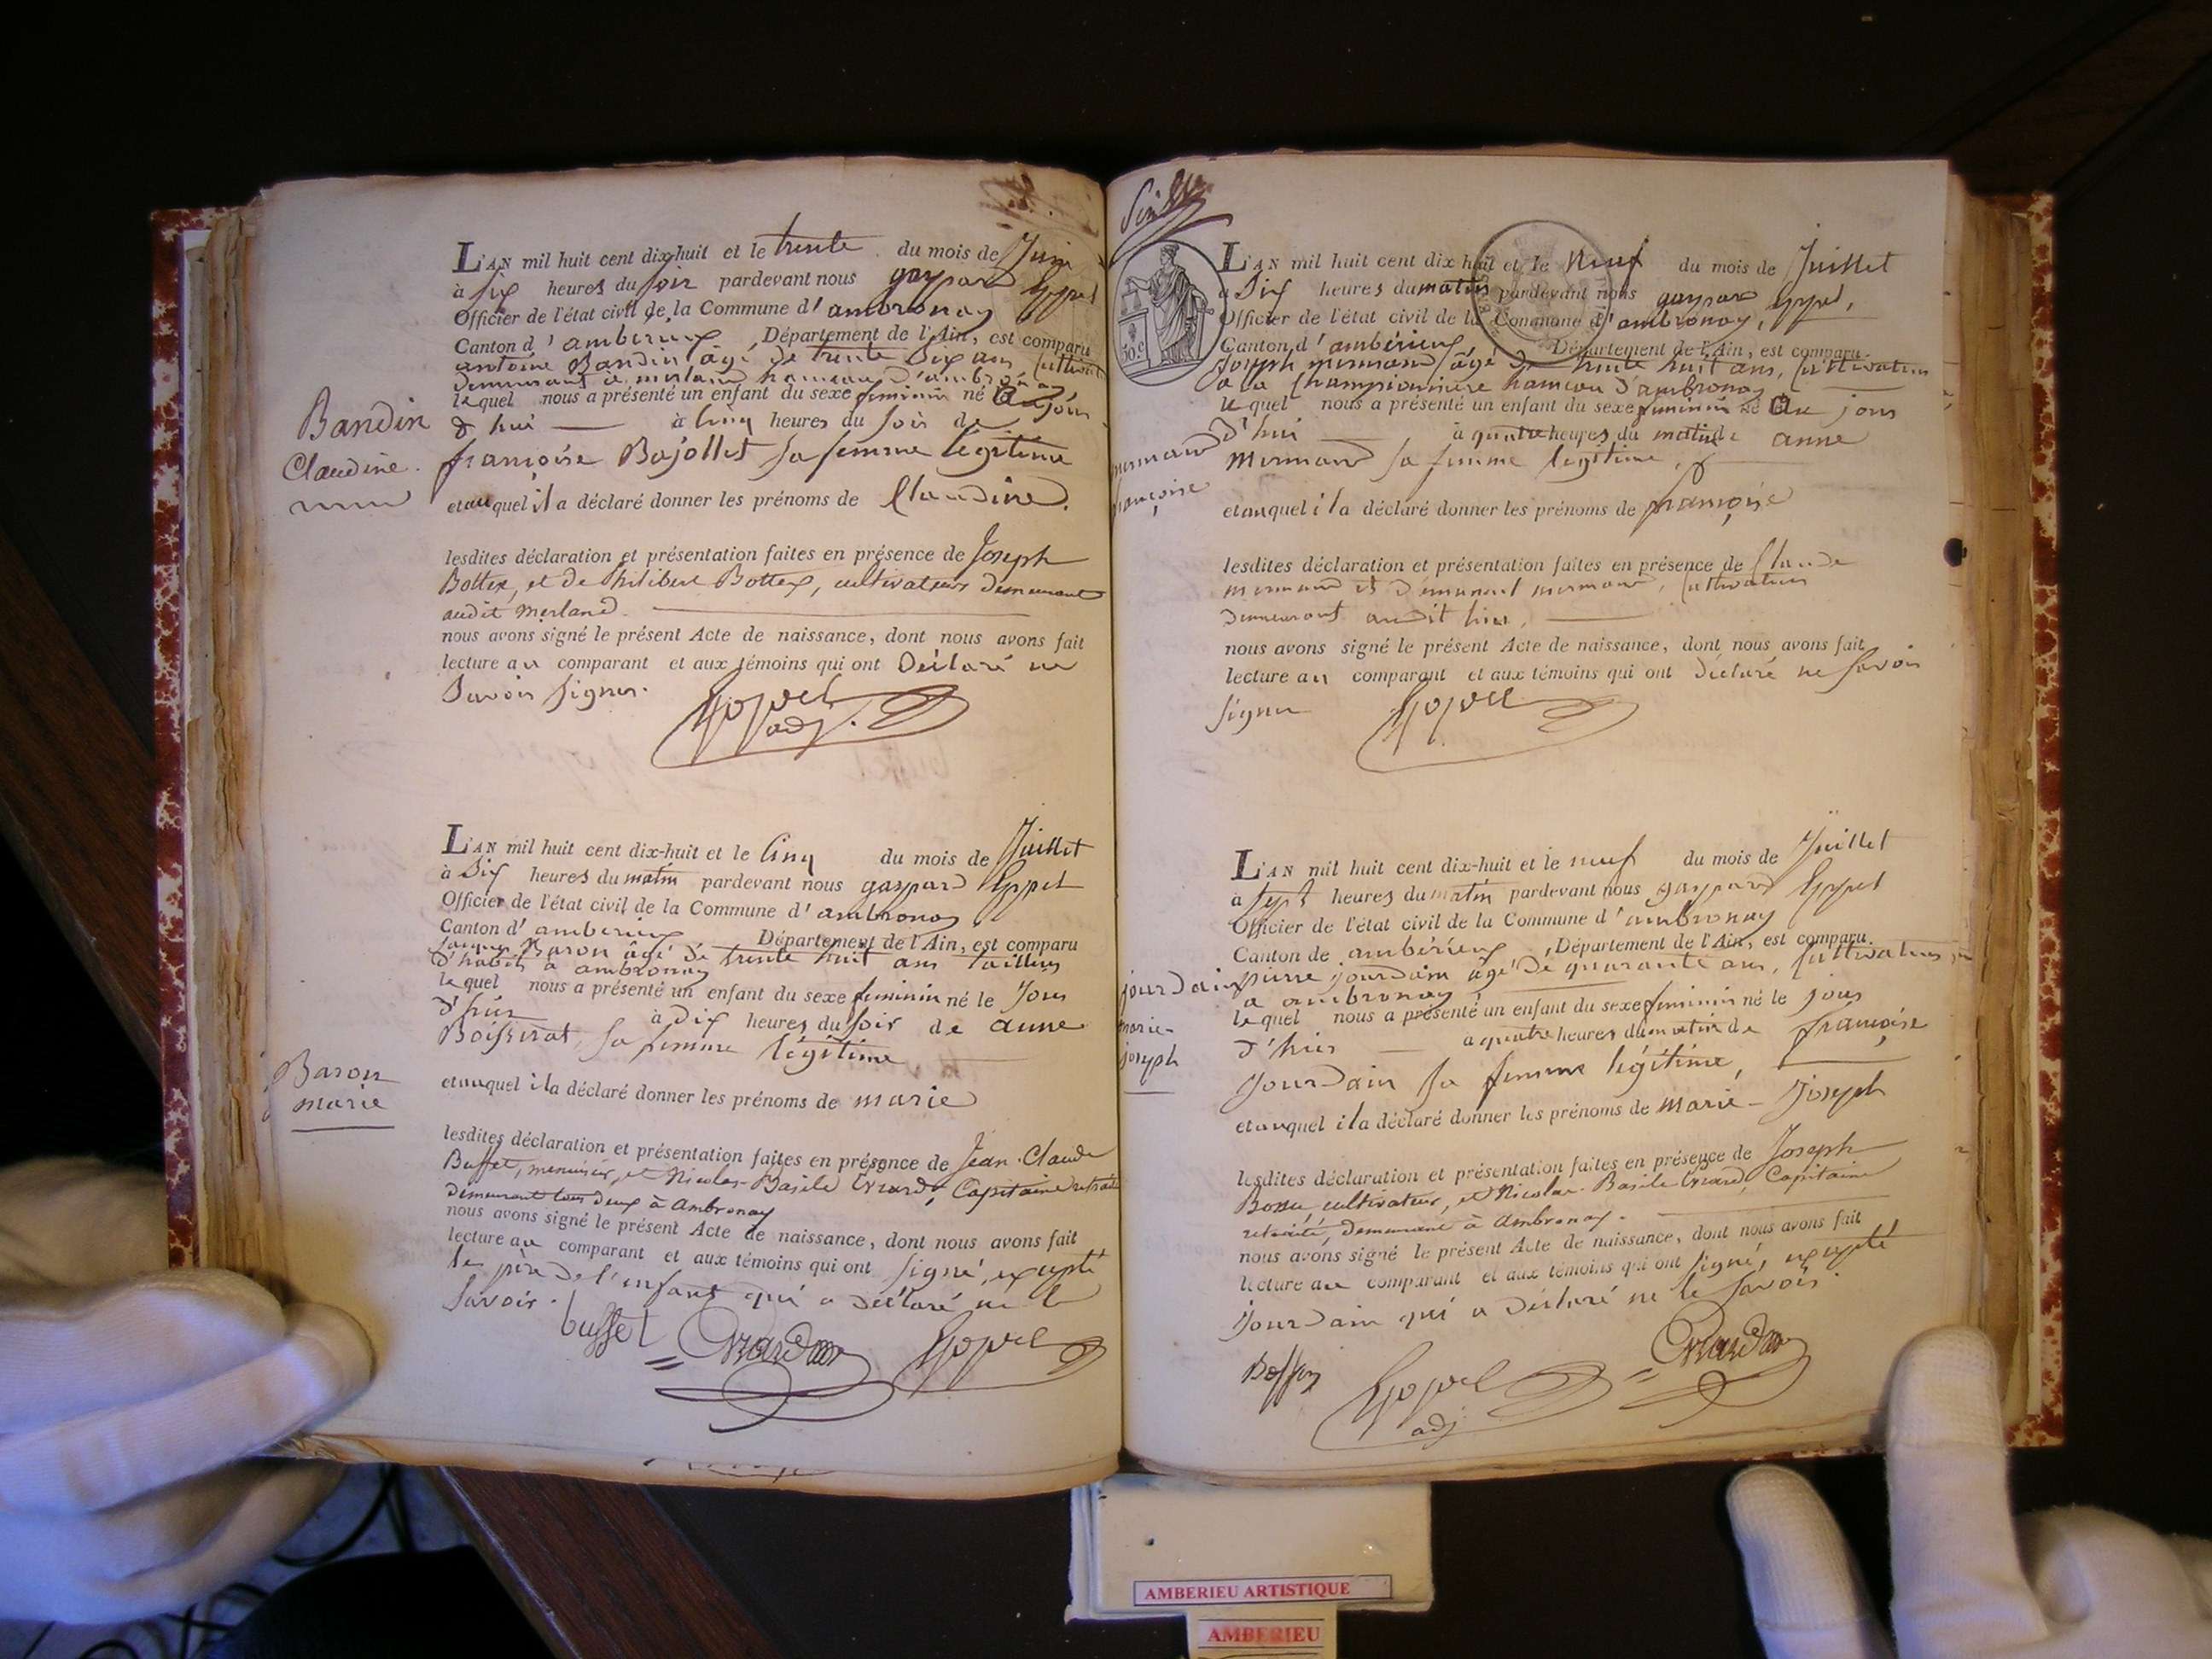 L'AN mil huit cent dix-huit et le trente du mois de Juin
à six heures du soir pardevant nous gaspard Eppel
Officier de l'état civil de la Commune d'ambronay
Canton d'ambérieux Département de l'Ain, est comparu
antoine Bandin âgé de trente six ans Cultivateur
demeurant à merland hameau d'ambronay
lequel nous a présenté un enfant du sexe feminin né Aujour
d'hui à Cinq heures du soir de
françoise Bajollet sa femme légitime
et auquel il a déclaré donner les prénoms de Claudine.
Bandin
Claudine.
lesdites déclaration et présentation faites en présence de Joseph
Bottex, et de Philibert Bottex, cultivateurs demeurant
audit Merland.
nous avons signé le présent Acte de naissance, dont nous avons fait
lecture au comparant et aux témoins qui ont Déclaré ne
Savoir signer.
Eppel
adj.
L'AN mil huit cent dix-huit et le Cinq du mois de Juillet
à Dix heures du matin pardevant nous gaspard Eppel
Officier de l'état civil de la Commune d'ambronay
Canton d'amberieux Département de l'Ain, est comparu
Baron âgé de trente huit ans tailleur
d'habits à ambronay
lequel nous a présenté un enfant du sexe feminin né le Jour
d'hier à Dix heures du soir de anne
sa femme légitime
et auquel il a déclaré donner les prénoms de marie
Baron
marie
lesdites déclaration et présentation faites en présence de Jean-Claude
Buffet, menuisier, et Nicolas-Basile Evrard, Capitaine retraité
demeurant tous deux à Ambronay
nous avons signé le présent Acte de naissance, dont nous avons fait
lecture au comparant et aux témoins qui ont signé, excepté
le père de l'enfant qui a déclaré ne le
Savoir.
buffet Evrard Eppel
50.c
L'AN mil huit cent dix huit et le Neuf du mois de Juillet
à Dix heures du matin pardevant nous gaspard Eppel,
Officier de l'état civil de la Commune d'ambronay,
Canton d'ambérieux Département de l'Ain, est comparu
Joseph mermand âgé de trente huit ans, Cultivateur
à la Championnière hameau d'ambronay
lequel nous a présenté un enfant du sexe feminin né Au jour
d'hui à quatre heures du matin de anne
Mermand sa femme légitime,
et auquel il a déclaré donner les prénoms de françoise
mermand
françoise
lesdites déclaration et présentation faites en présence de Claude
mermand et mermand, Cultivateurs
Demeurant audit lieu,
nous avons signé le présent Acte de naissance, dont nous avons fait
lecture au comparant et aux témoins qui ont Déclaré ne Savoir
signer
Eppel
L'AN mil huit cent dix-huit et le neuf du mois de Juillet
à sept heures du matin pardevant nous gaspard Eppel
Officier de l'état civil de la Commune d'ambronay
Canton de ambérieux, Département de l'Ain, est comparu
pierre jourdain âgé de quarante ans, Cultivateur
à ambronay
lequel nous a présenté un enfant du sexe feminin né le jour
d'hui à quatre heures du matin de françoise
Jourdain sa femme légitime,
et auquel il a déclaré donner les prénoms de Marie-Joseph
jourdain
marie-
joseph
lesdites déclaration et présentation faites en présence de Joseph
Bossu, cultivateur, et Nicolas-Basile Evrard, Capitaine
retraité, demeurant à Ambronay.
nous avons signé le présent Acte de naissance, dont nous avons fait
lecture au comparant et aux témoins qui ont signé, excepté
jourdain qui a Déclaré ne le savoir.
Eppel Evrard
adj.
AMBERIEU ARTISTIQUE
AMBERIEU